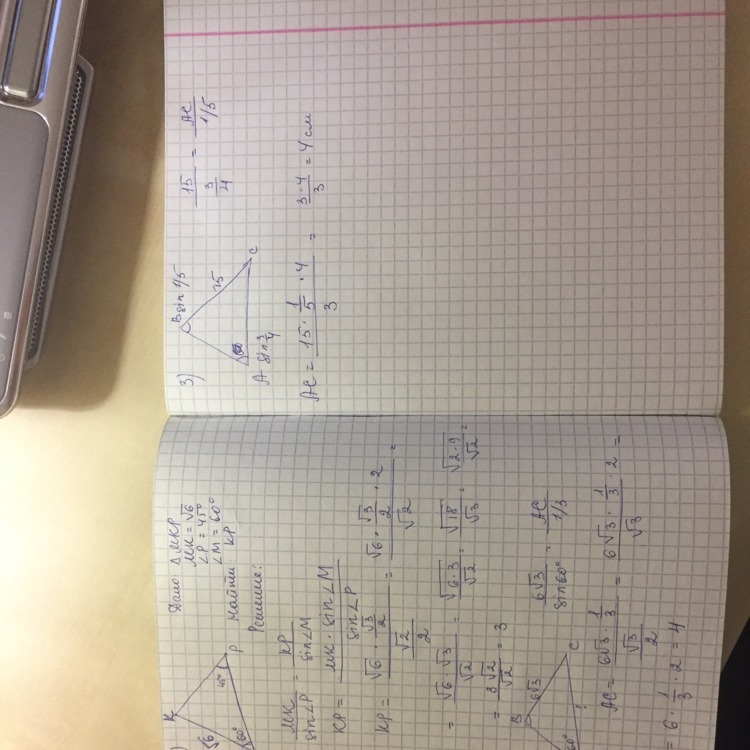 )
K
√6
45°
P
60°
Дано: △MKP
MK = √6
∠P = 45°
∠M = 60°
Найти KP
Решение:
MK/sin∠P = KP/sin∠M
KP = MK · sin∠M / sin∠P
KP = (√6 · √3/2) / (√2/2) = (√6 · √3/2 · 2) / √2 =
= √6 · √3 / √2 = √6·3 / √2 = √18 / √3 = √2·9 / √2 =
= 3√2 / √2 = 3
B
6√3
C
60°
?
6√3 / sin60° = AC / 1/3
AC = (6√3 · 1/3) / (√3/2) = (6√3 · 1/3 · 2) / √3 =
6 · 1/3 · 2 = 4
3)
B sin 1/5
15
C
A
sin 3/4
15 / (3/4) = AC / 1/5
AC = (15 · 1/5 · 4) / 3 = 3 · 4 / 3 = 4 см